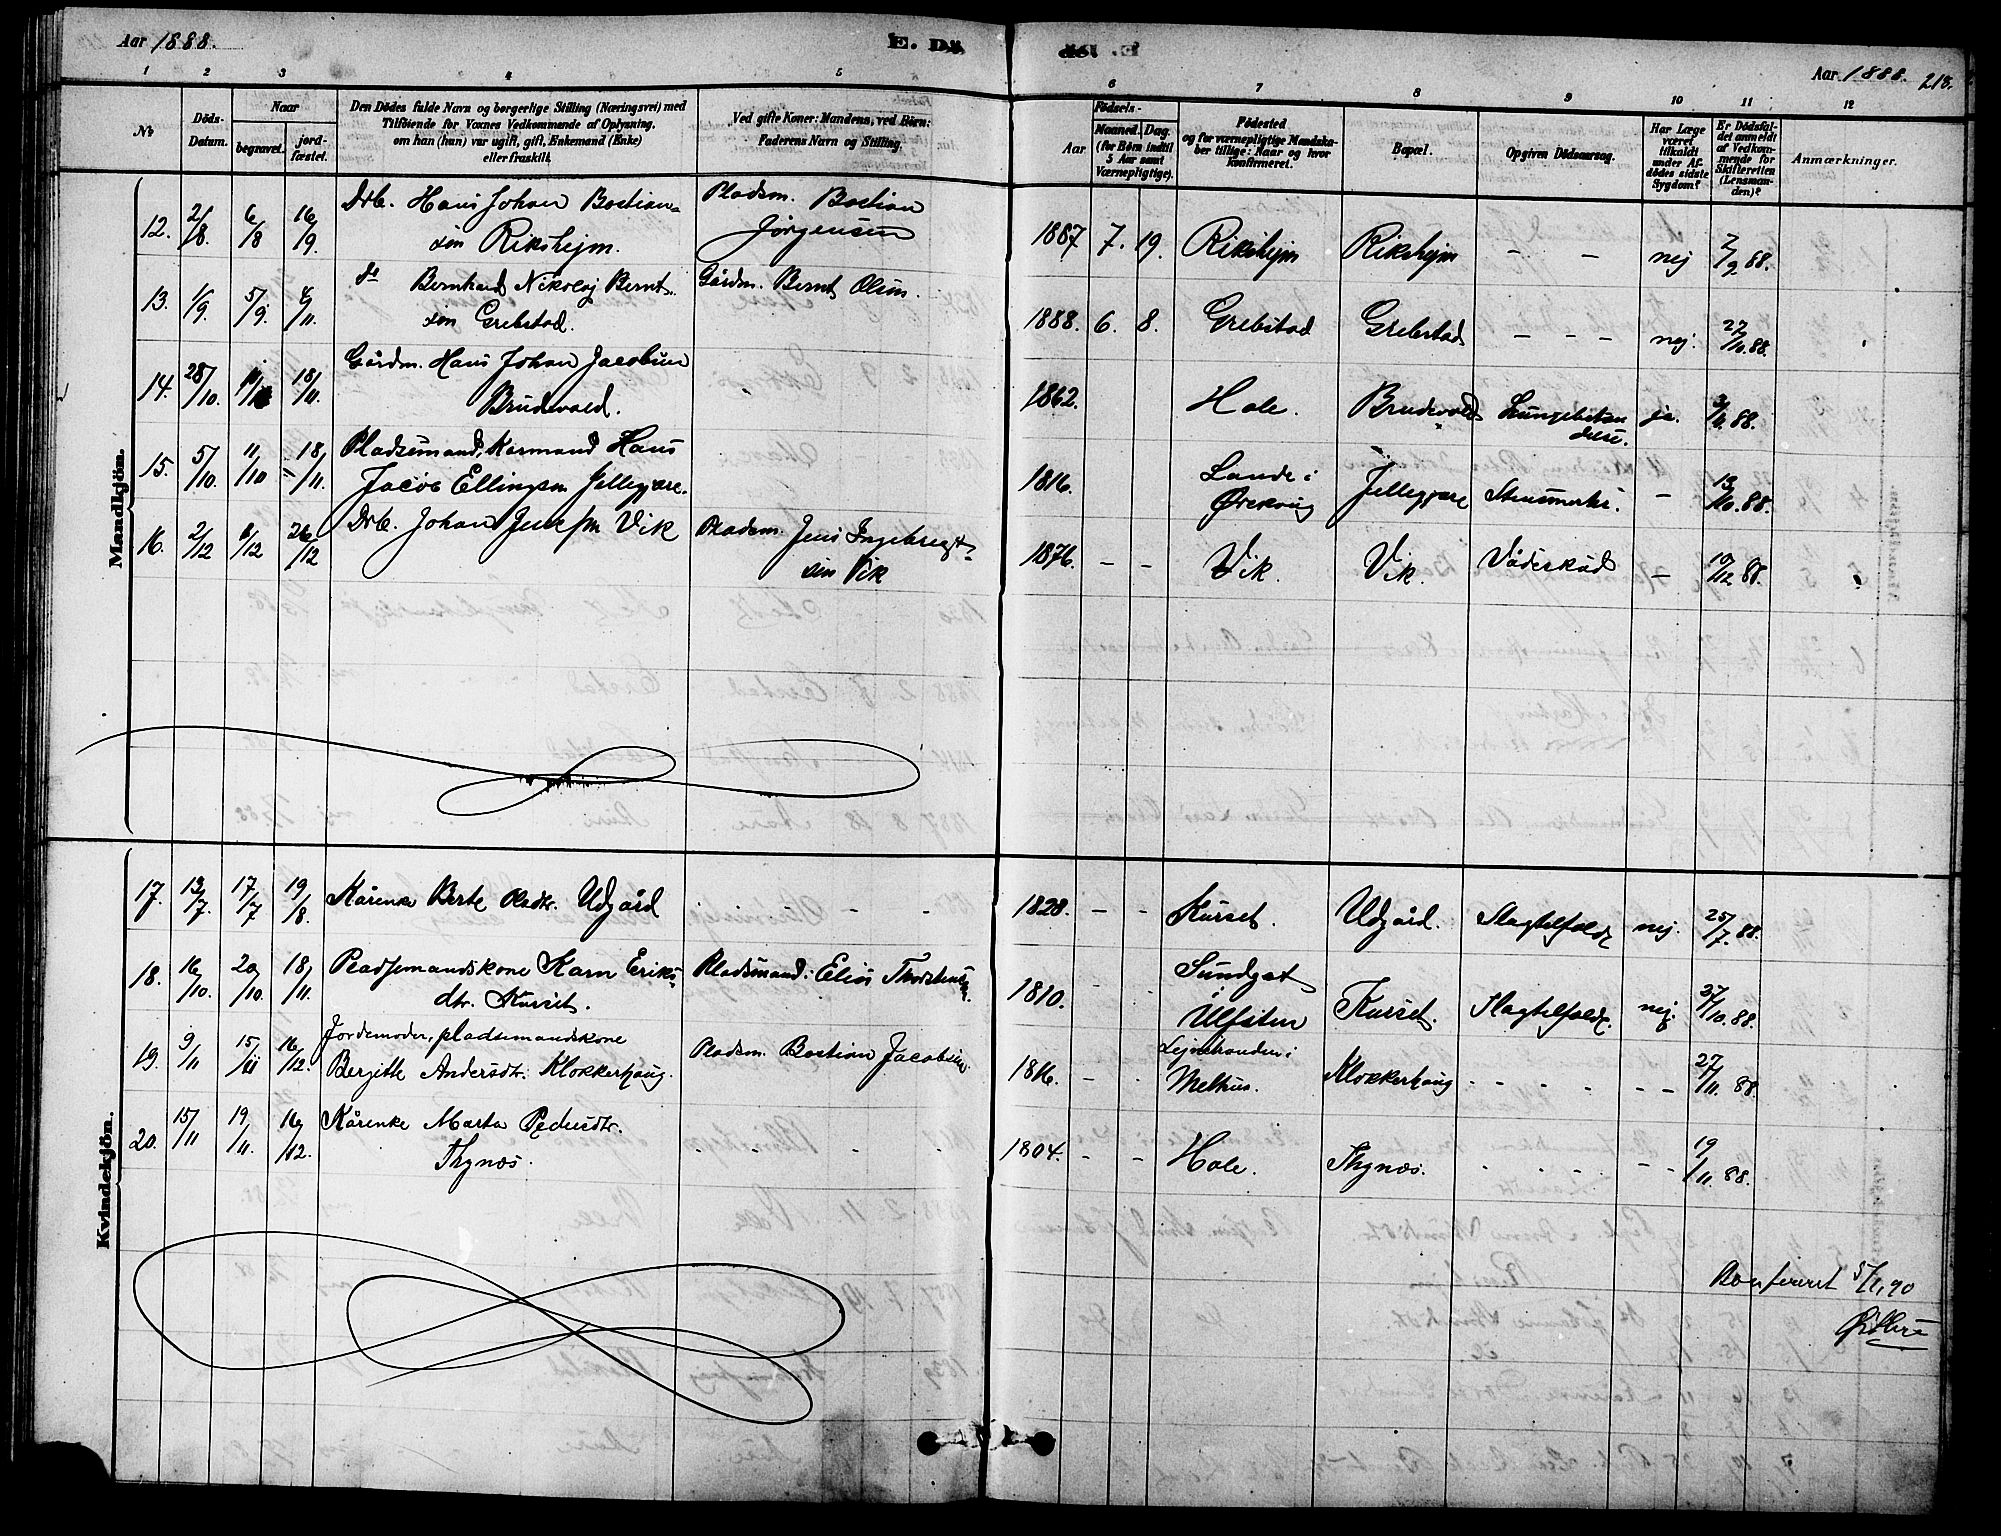 Aar 1888.
E. Dö
E. Dö
Aar 1888. 213.
1 2 3 4 5 6 7 8 9 10 11 12
No
Döds-
Datum.
Naar
begravet.
jord-
fæstet.
Den Dödes fulde Navn og borgerlige Stilling (Næringsvei) med
Tilföiende for Voxnes Vedkommende af Oplysning,
om han (hun) var ugift, gift, Enkemand (Enke)
eller fraskilt.
Ved gifte Koner: Mandens, ved Börn:
Faderens Navn og Stilling.
Födsels-
Aar
Maaned. Dag.
(for Börn indtil
5 Aar samt
Værnepligtige).
Födested
og for værnepligtige Mandska-
ber tillige: Naar og hvor
konfirmeret.
Bopæl.
Opgiven Dödsaarsag.
Har Læge
været
tilkaldt
under Af-
dödes sidste
Sygdom?
Er Dödsfal-
det anmeldt
af Vedkom-
mende for
Skifteretten
(Lensman-
den)?
Anmærkninger.
Mandkjön.
12. 2/8 6/8 16/9 Drb. Hans Johan Bastian- Pladsm. Bastian
søn Riksheim. Jørgensen 1887 7. 19. Riksheim Riksheim - - nej 7/9 88.
13. 1/9. 5/9. 4/11. do Bernhard Nikolaj Bernt- Gårdm. Bernt Olsen.
søn Grebstad. 1888. 6. 8. Grebstad Grebstad - - - nej. 27/11.88.
14. 28/10. 18/11. Gårdm. Hans Johan Jacobsen
Brudevold. 1862. Hole. Brudevold Lungebetæn-
delse. ja. 88.
15. 5/10. 11/10 18/11. Pladsemand, Kårmand Hans
Jacob Ellingsen Jellegjære. 1816. Lande i
Ørskoug Jellegjære - 13/10.88.
16. 2/12 6/12 26/12 Drb. Johan Jensen Vik Pladsm. Jens Ingebrigt-
sen Vik 1876. - - Vik. Vik. Vådeskud - 10/12 88.
Kvindekjön.
17. 13/7. 17/7 19/8. Kårenke Berte Udgård - - 1828. - - Kurset. Udgård. Slagtilfælde nej. 25/7. 88.
18. 16/10. 20/10. 18/11. Pladsemandskone Karn Eriks- Pladsmand: Elias Thorstensen.
dtr. Kurset. 1810. - - Sundgot
i
Ulfsten Kurset. Slagtilfælde. nej. 27/10.88.
19. 9/11 15/11 16/12. Jordemoder, pladsemandskone
Bergitte Andersdtr. Klokkerhaug. Pladsm. Bastian Jacobsen 1816. - - Lejnstranden i
Melhus. Klokkerhaug - - - - - - 27/11. 88.
20. 15/11 19/11. 16/12. Kårenke Marta Pedersdtr.
Thynæs. - - - 1804. - - Hole. Thynæs. - - - - - - 19/11. 88.
Konfereret 5/1,90